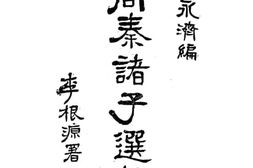 永濟編
周秦諸子選
李根源署